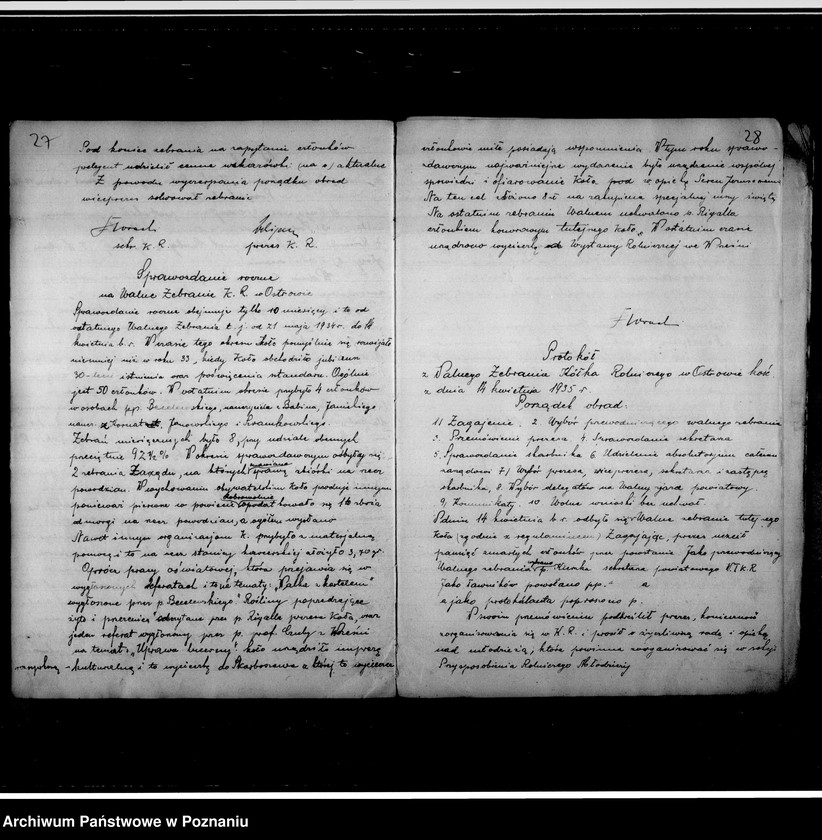 27
Pod koniec zebrania na zapytanie członków
prelegent udzielił cenne wskazówki (na e) aktualne
Z powodu wyczerpania porządku obrad
wiceprezes solwował zebranie
sekr. K. R. prezes K. R.
Sprawozdanie roczne
na Walne Zebranie K. R w Ostrowie
Sprawozdanie roczne obejmuje tylko 10 miesięcy i to od
ostatniego Walnego Zebrania t. j. od 21 maja 1934 r. do 14
kwietnia b. r. W czasie tego okresu Koło pomyślnie się rozwijało
niemniej niż w roku 33, kiedy Koło obchodziło jubileusz
30-lecia istnienia oraz poświęcenia standaru. Ogólnie
jest 50 członków. W ostatnim okresie przybyło 4 członków
w osobach pp. nauczyciela z Babina, Janickiego
Janowskiego i Iwankowskiego.
Zebrań miesięcznych było 8, przy udziale obecnych
przeciętnie 92 %. W okresie sprawozdawczym odbyły się
2 zebrania Zarządu, na których sprawę zbiórki na rzecz
powodzian. W wychowaniu obywatelskim Koło przoduje innym
ponieważ pierwsze w powiecie dobrowolnie opodatkowało się 1 zboża
od morgi na rzecz powodzian, a ogółem wysłano
Nawet innym organizacjom K. przybyło z materjalną
pomocą i to na rzecz złożyło 3,40 zł.
Oprócz pracy oświatowej, która przejawia się w
wygłoszonych referatach i to na tematy: "Walka z kartelem"
wygłoszone przez p. Rośliny poprzedzające
żyto i pszenicę odczytane przez p. Rigalla prezesa Koła, oraz
jeden referat wygłoszony przez p. prof. z Wrześni
na temat: "Uprawa lucerny" koło urządziło imprezę
- kulturalną i to wycieczkę do Skarboszewa z której to wycieczce
28
członkowie miłe posiadają wspomnienia. W tym roku sprawo-
zdawczym najważniejsze wydarzenie było urządzenie wspólnej
spowiedzi i ofiarowanie Koła pod w opiekę Serca Jezusowemu
Na ten cel złożono 8 zł na zakupienie specjalnej mszy świętej
Na ostatnim zebraniu Walnem uchwalono z Rigalla
członkiem honorowym tutejszego Koła. W ostatnim czasie
urządzono wycieczkę do Wystawy Rolniczej we Wrześni
Protokół
z Walnego Zebrania Kółka Rolniczego w Ostrowie kość
z dnia 14 kwietnia 1935 r
Porządek obrad:
1) Zagajenie. 2 Wybór przewodniczącego walnego zebrania
3. Przemówienie prezesa, 4 Sprawozdanie sekretarza
5. Sprawozdanie skarbnika 6 Udzielenie absolutorjum całemu
zarządowi 7) Wybór prezesa, wiceprezesa, sekretarza i zastępcę
skarbnika, 8. Wybór delegatów na Walny zjazd powiatowy
9) Komunikaty. 10 Wolne wnioski bez uchwał.
W dniu 14 kwietnia b. r. odbyło się Walne zebranie tutejszego
Koła (zgodnie z regulaminem) Zagajając, prezes uczcił
pamięć zmarłych członków przez powstanie. Jako przewodniczący
Walnego zebrania p. sekretarz powiatowego W.T.K.R
Jako ławników powołano pp. - a
a jako protokólanta poproszono p.
W swoim przemówieniu podkreślił prezes, konieczność
zorganizowania się w K. R. i prosił o życzliwą radę i opiekę
nad młodzieżą, która powinna zorganizować się w sekcji
Przysposobienia Rolniczego Młodzieży
Archiwum Państwowe w Poznaniu